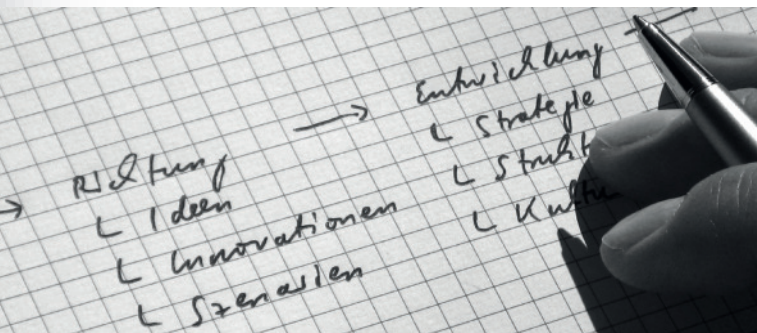 → Richtung
└ Ideen
└ Innovationen
└ Szenarien
→ Entwicklung
└ Strategie
└ Strukt
└ Kultu